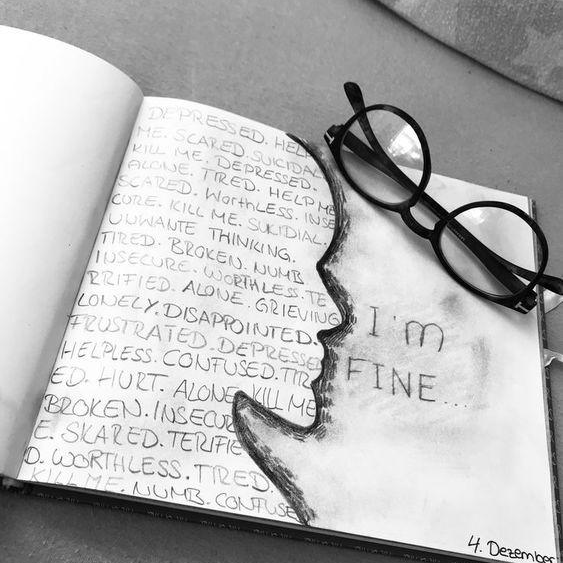 DEPRESSED. HELP
ME. SCARED. SUICIDAL
KILL ME. DEPRESSED.
ALONE. TIRED. HELP ME
SCARED. Worthless. INSE
CURE. KILL ME. SUICIDIAL.
UNWANTE THINKING.
TIRED. BROKEN. NUMB
INSECURE. WORTHLESS. TE
RRIFIED. ALONE. GRIEVING
LONELY. DISAPPOINTED.
FRUSTRATED. DEPRESSE
HELPLESS. CONFUSED. TIR
ED. HURT. ALONE. KILL ME
BROKEN. INSECUR
E. SKARED. TERIFIE
D. WORTHLESS. TIRED.
KILL ME. NUMB. CONFUSE
I'm
FINE...
4. Dezember